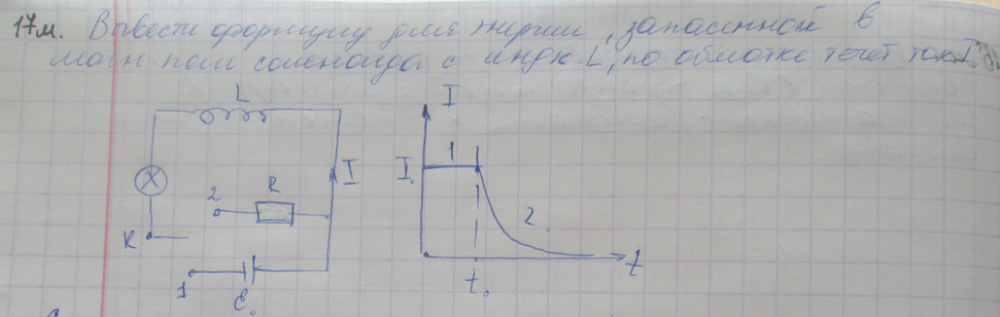 17м. Вывести формулу для энергии, запасенной в
магн. поле соленоида с индук. L, по обмотке течет ток I.
L
I
I
1
I₀
2
R
2.
K
t
1
ε₀
t₀